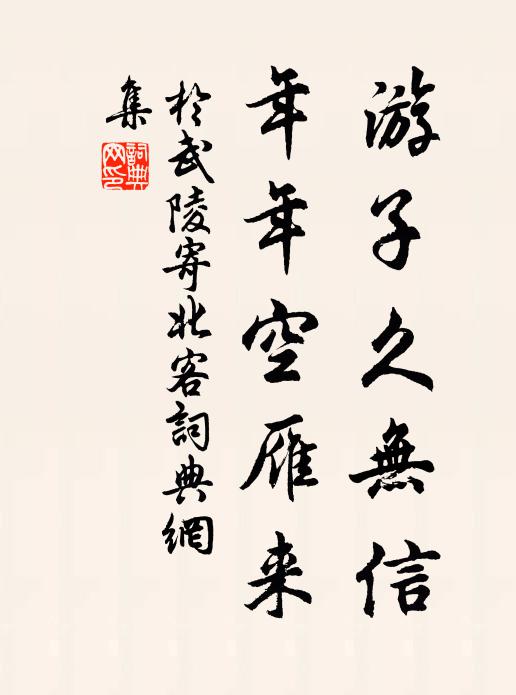 游子久無信
年年空雁来
於武陵寄北客詞典網
集
詞典
网印